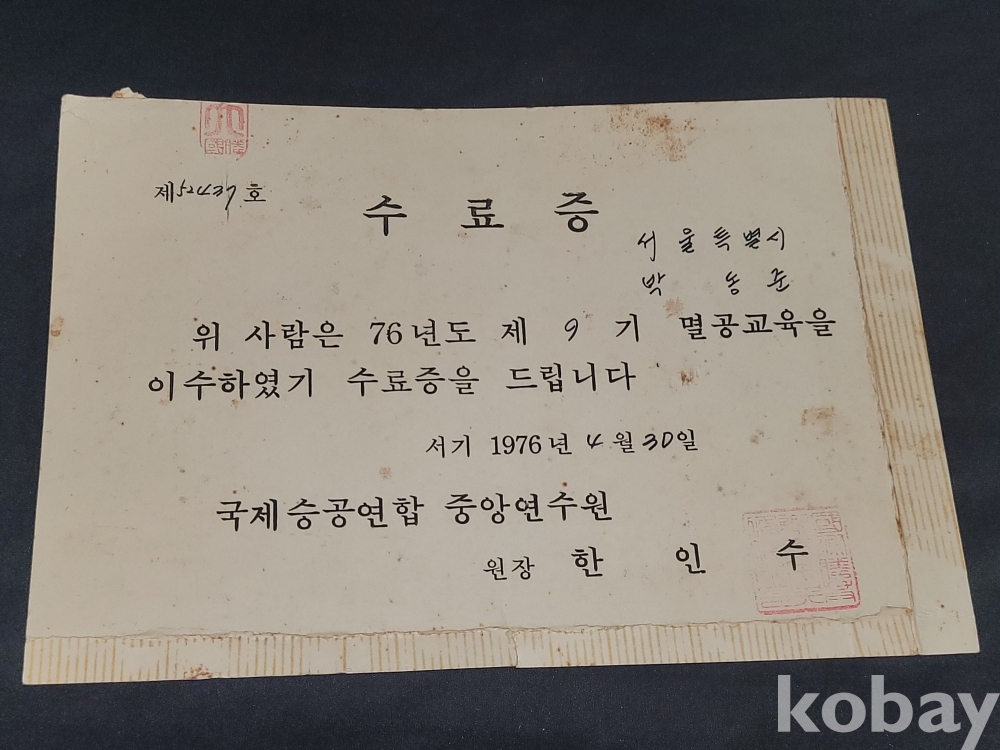 제52437호
수 료 증
서울특별시
박 동 준
위 사람은 76년도 제 9 기 멸공교육을
이수하였기 수료증을 드립니다
서기 1976년 4월 30일
국제승공연합 중앙연수원
원장 한 인 수
kobay